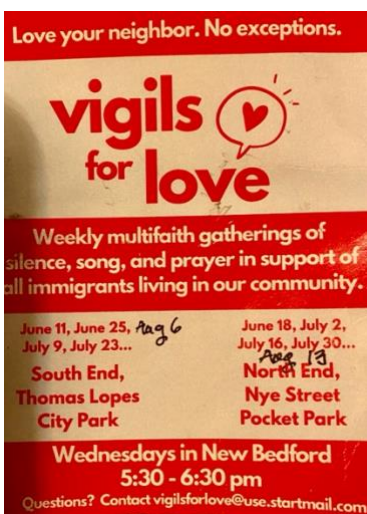 Love your neighbor. No exceptions.
vigils
for love
Weekly multifaith gatherings of
silence, song, and prayer in support of
all immigrants living in our community.
June 11, June 25, Aug 6
July 9, July 23...
South End,
Thomas Lopes
City Park
June 18, July 2,
July 16, July 30...
Aug 13
North End,
Nye Street
Pocket Park
Wednesdays in New Bedford
5:30 - 6:30 pm
Questions? Contact vigilsforlove@use.startmail.com